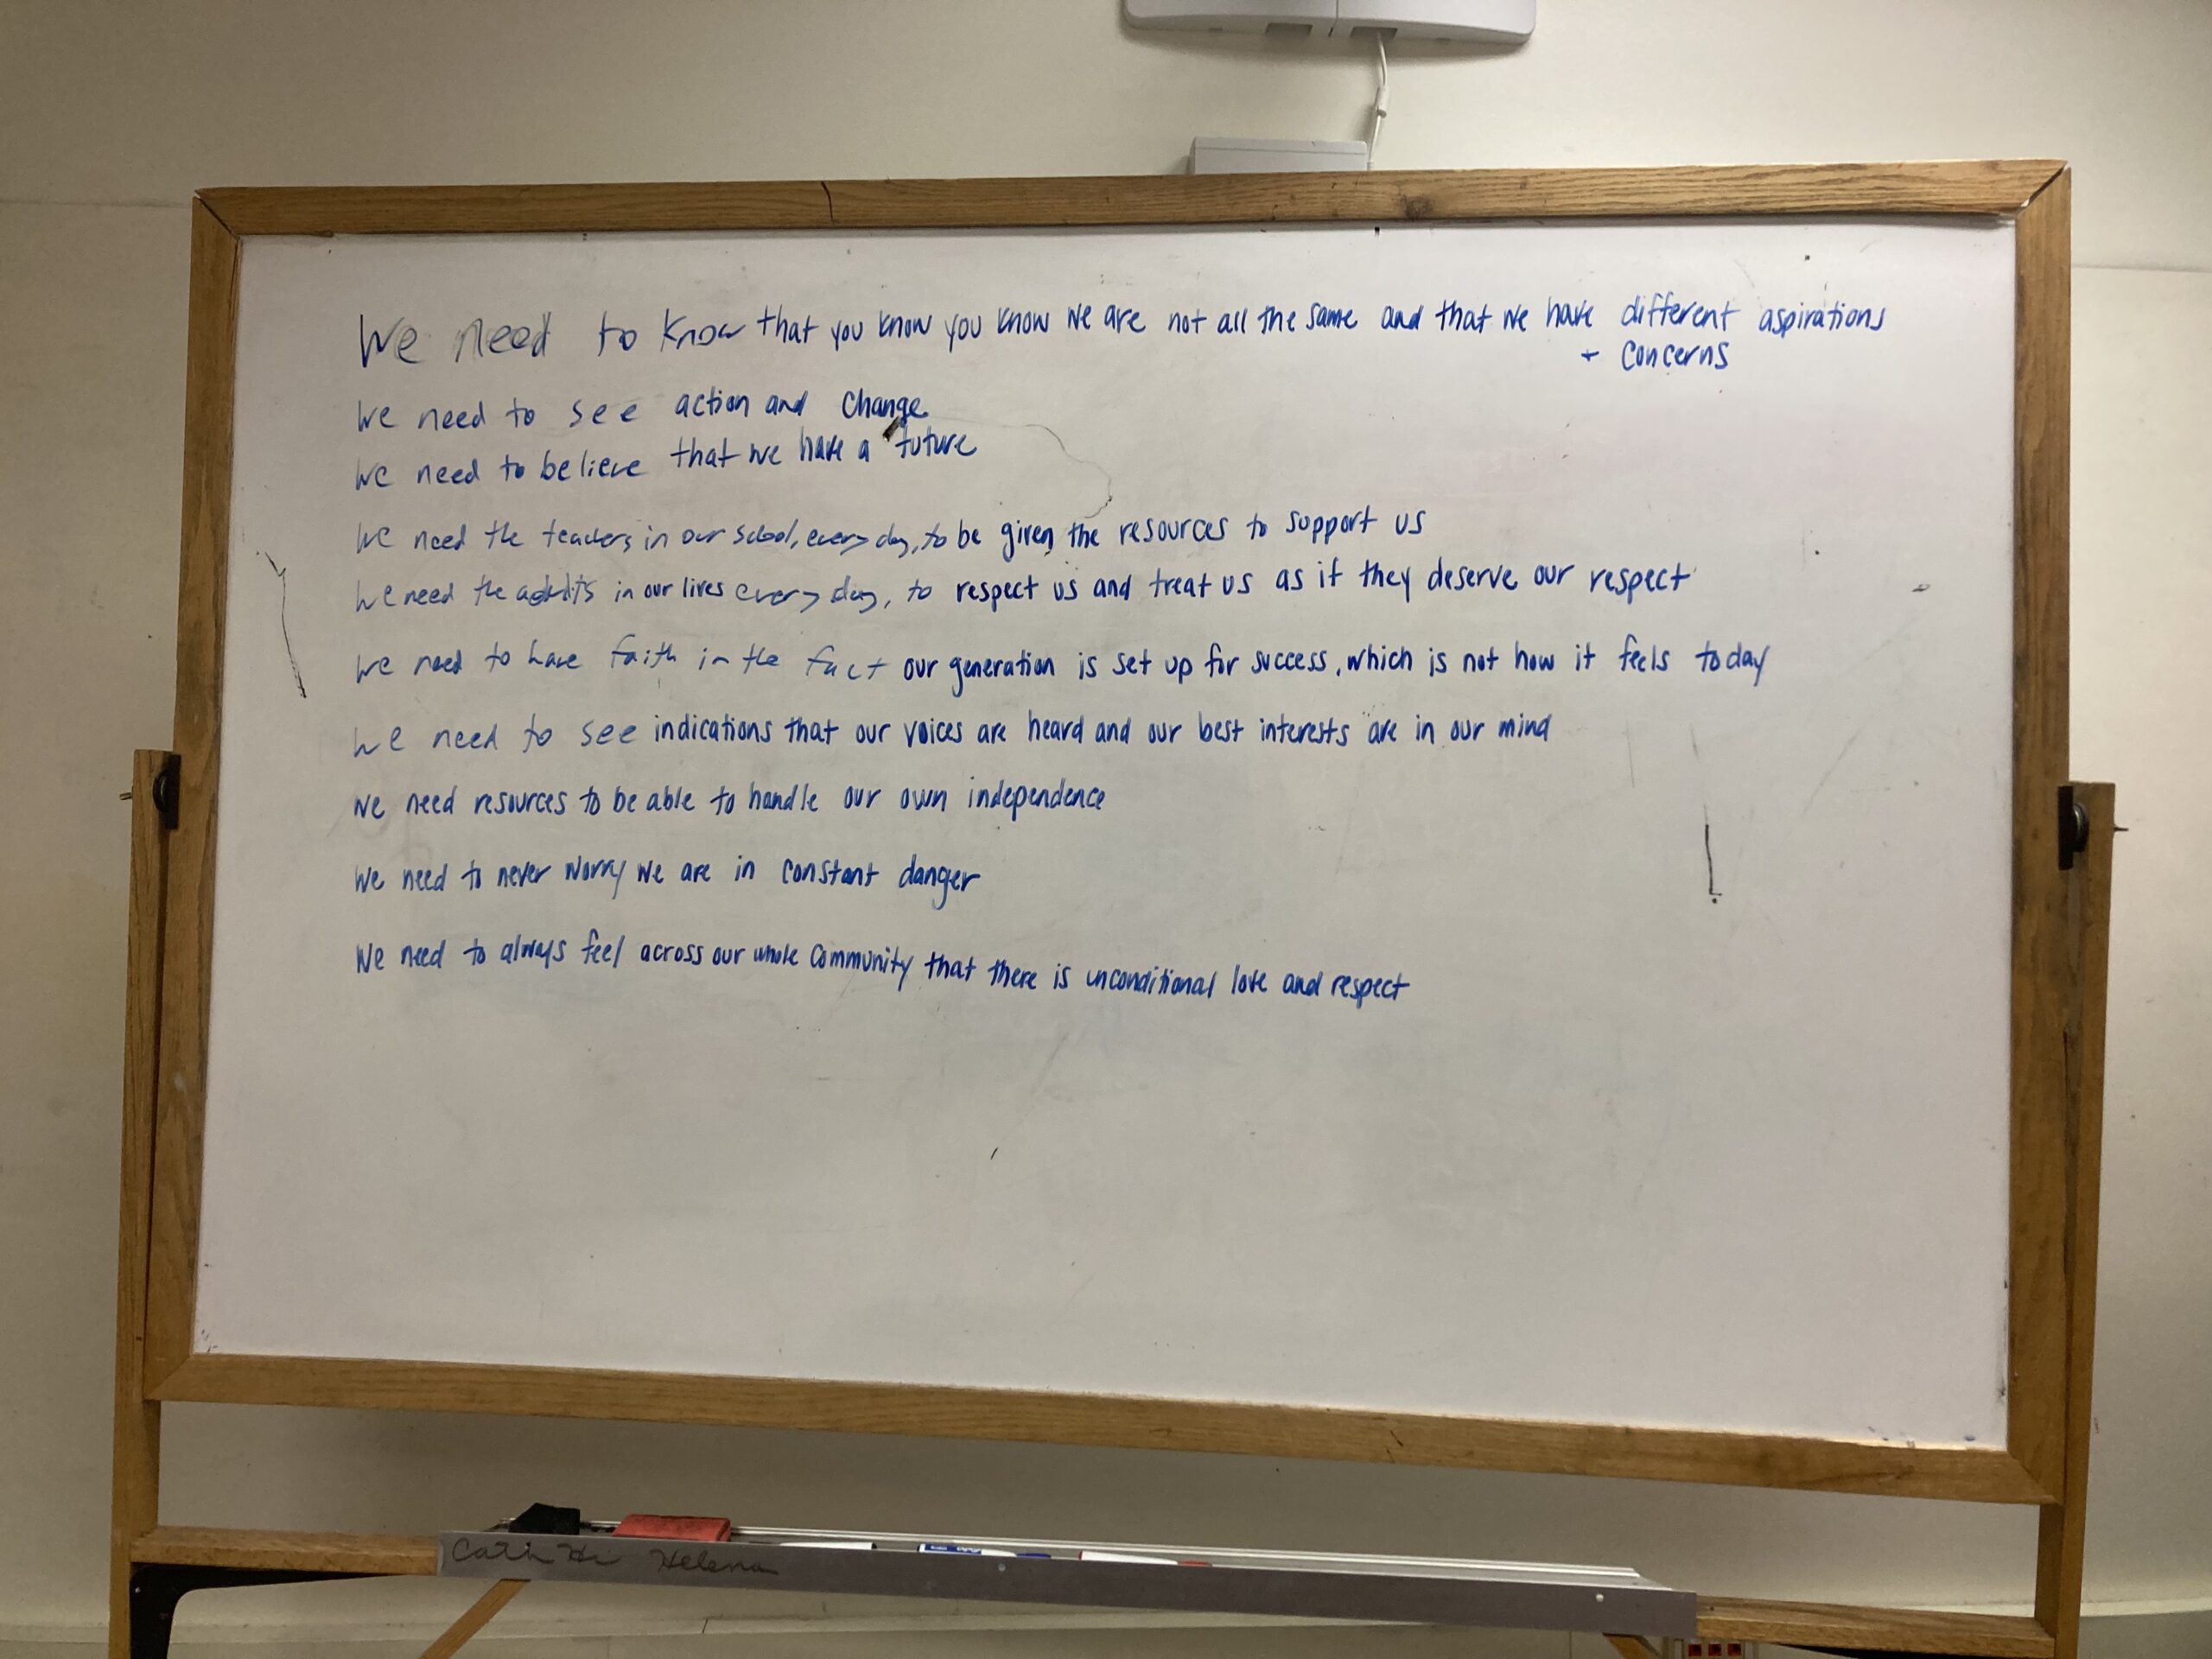 We need to know that you know you know we are not all the same and that we have different aspirations
+ concerns
We need to see action and change
We need to believe that we have a future
We need the teachers in our school, every day, to be given the resources to support us
We need the adults in our lives every day, to respect us and treat us as if they deserve our respect
We need to have faith in the fact our generation is set up for success, which is not how it feels today
We need to see indications that our voices are heard and our best interests are in our mind
We need resources to be able to handle our own independence
We need to never worry we are in constant danger
We need to always feel across our whole community that there is unconditional love and respect
Helena